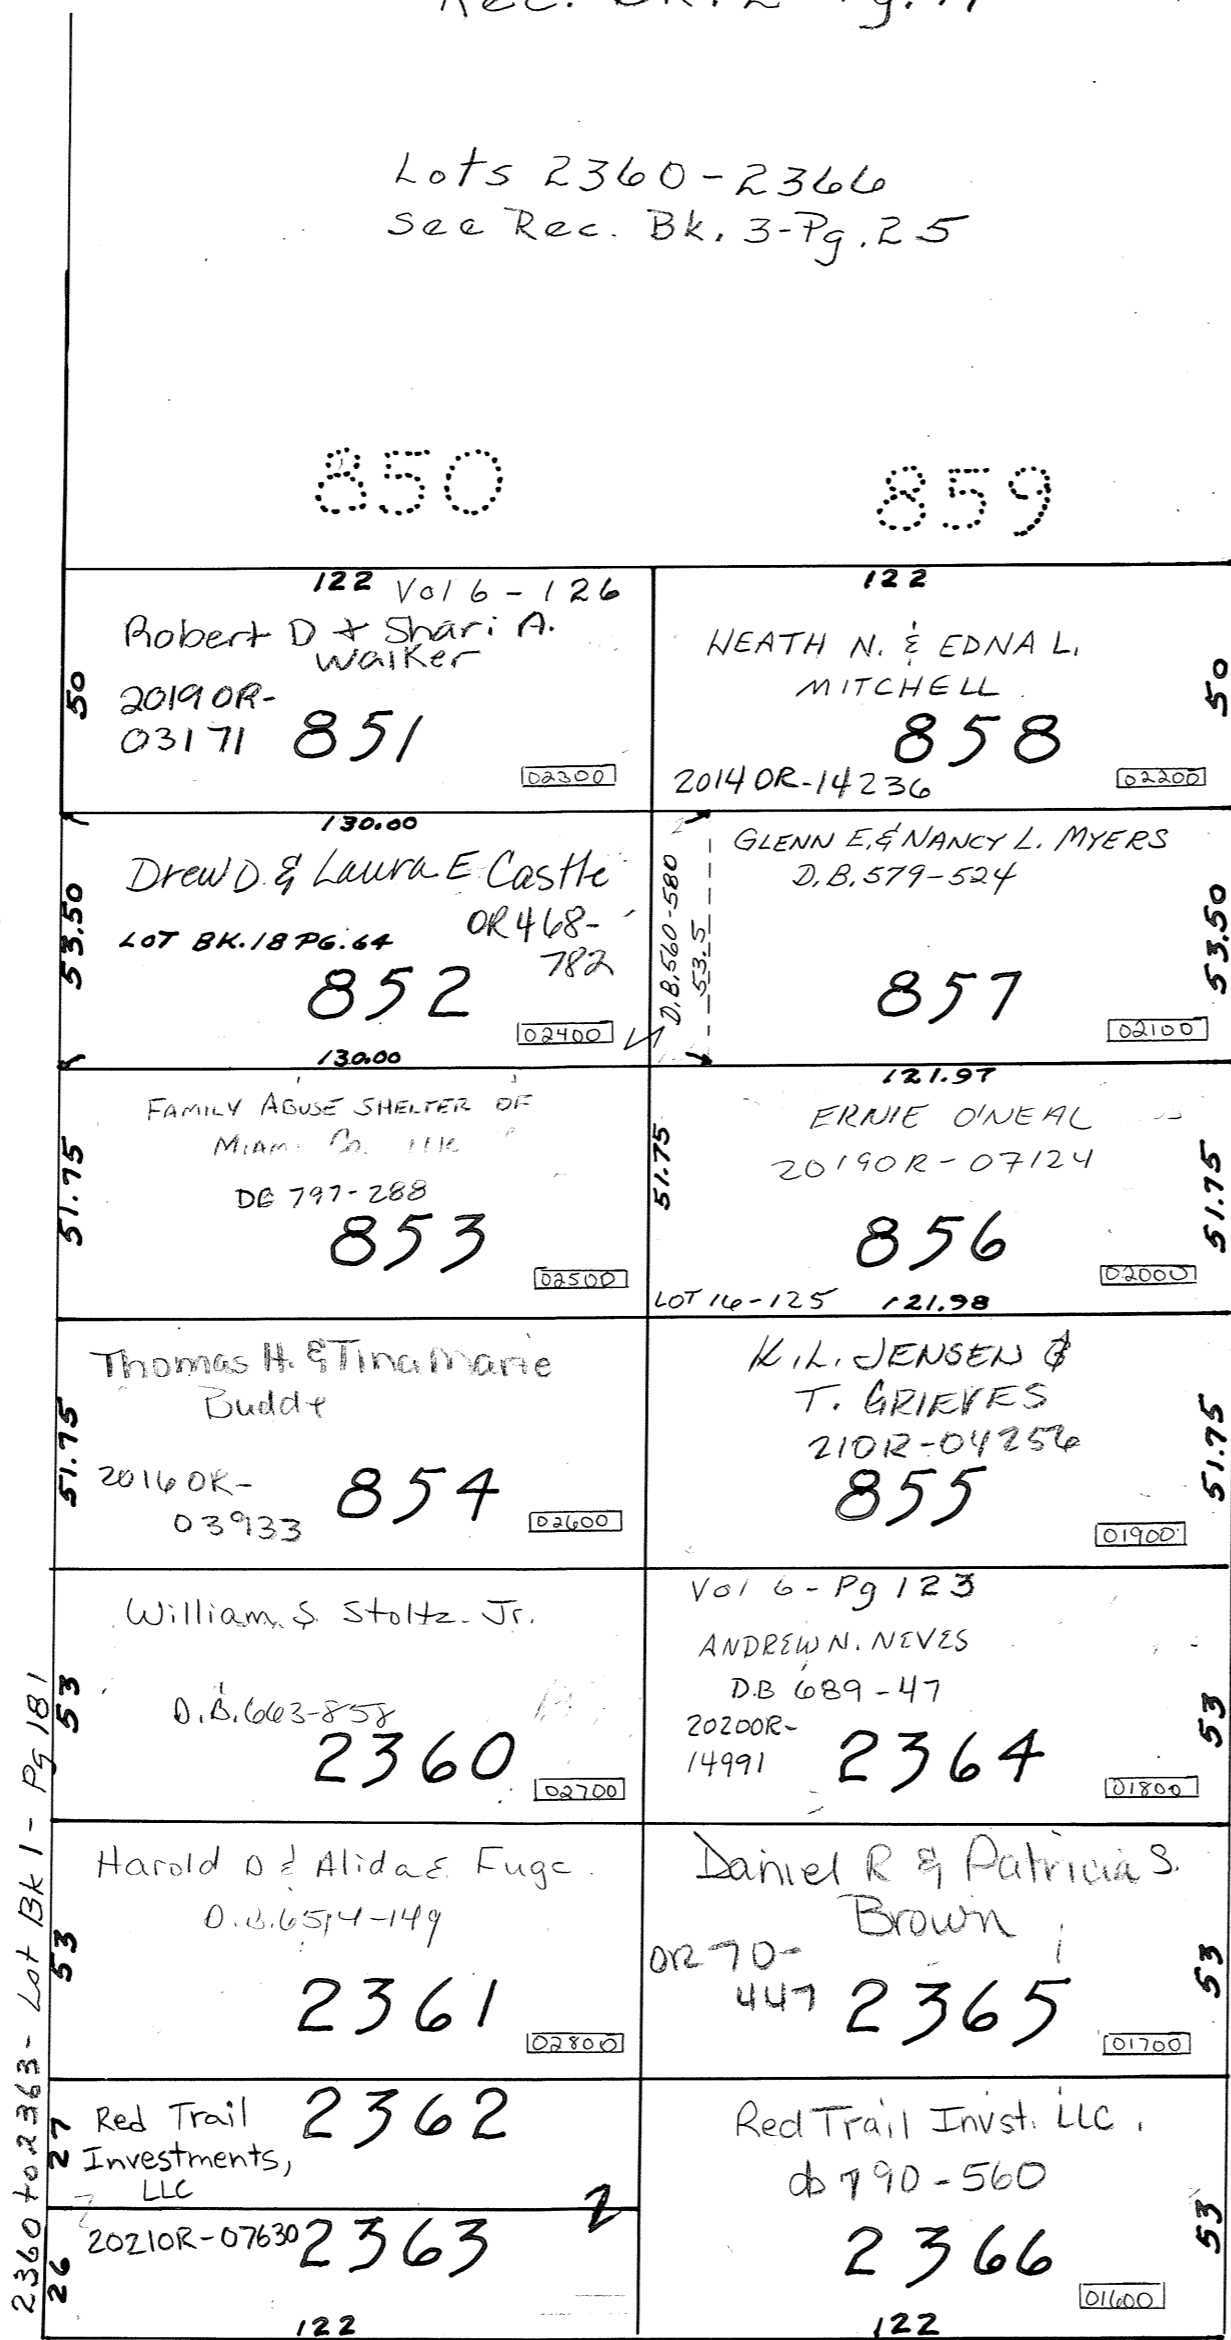 Rec. Bk. 2 Pg.
Lots 2360-2366
See Rec. Bk. 3-Pg.25
850
859
122 Vol 6-126
Robert D + Shari A.
Walker
50
2019OR-
03171
851
02300
122
HEATH N. & EDNA L.
MITCHELL
50
858
2014OR-14236
02200
130.00
Drew D. & Laura E Castle
53.50
LOT BK.18 PG.64
OR 468-
782
852
02400
130.00
D.B.560-580
53.5
GLENN E. & NANCY L. MYERS
D.B.579-524
53.50
857
02100
FAMILY ABUSE SHELTER OF
MIAMI Co.
51.75
DB 797-288
853
02500
121.97
51.75
ERNIE O'NEAL
2019OR-07124
51.75
856
02000
LOT 16-125
121.98
Thomas H. & Tina Marie
51.75
2016OR-
03933
854
02600
K.L. JENSEN &
T. GRIEVES
21OR-04256
51.75
855
01900
William S. Stoltz Jr.
53
D.B.663-858
2360
02700
Vol 6-Pg 123
ANDREW N. NEVES
D.B 689-47
2020OR-
14991
53
2364
01800
2360 to 2363 - Lot Bk 1 - Pg 181
Harold D & Alida E.
53
2361
02800
Daniel R & Patricia S.
Brown
OR 70-
447
53
2365
01700
27
Red Trail
Investments,
LLC
2362
2
26
2021OR-07630
2363
122
Red Trail Invst. LLC.
db 790-560
53
2366
01600
122